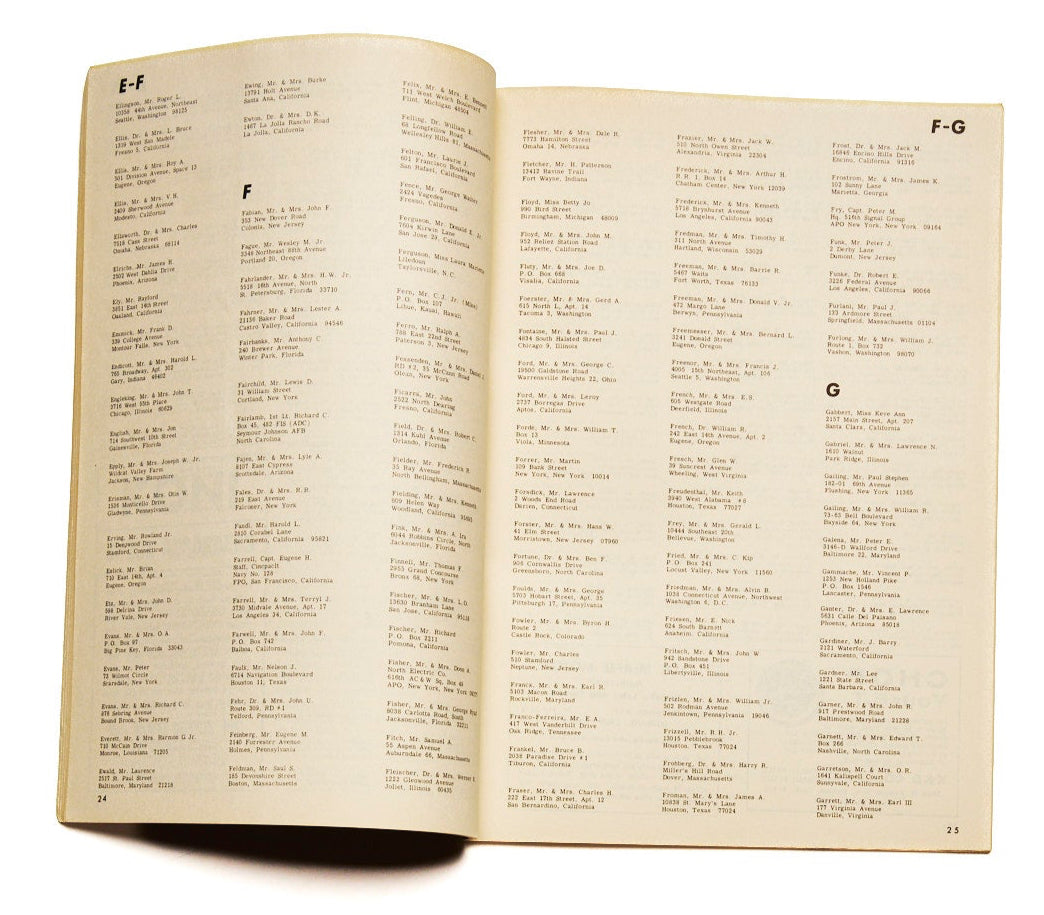 E-F
Ellingson, Mr. Roger L.
10359 44th Avenue, Northeast
Seattle, Washington 98125
Ellis, Dr. & Mrs. L. Bruce
1339 West San Madele
Fresno 5, California
Ellis, Mr. & Mrs. Roy A.
501 Division Avenue, Space 13
Eugene, Oregon
Ellis, Mr. & Mrs. V.H.
2409 Sherwood Avenue
Modesto, California
Ellsworth, Dr. & Mrs. Charles
7519 Cass Street
Omaha, Nebraska 68114
Elrichs, Mr. James H.
2502 West Dahlia Drive
Phoenix, Arizona
Ely, Mr. Rayford
3851 East 14th Street
Oakland, California
Emonick, Mr. Frank D.
339 College Avenue
Montour Falls, New York
Endicott, Mr. & Mrs. Harold L.
765 Broadway, Apt. 302
Gary, Indiana 46402
Engleking, Mr. & Mrs. John T.
3716 West 55th Place
Chicago, Illinois 60629
English, Mr. & Mrs. Jon
714 Southwest 10th Street
Gainesville, Florida
Epply, Mr. & Mrs. Joseph W. Jr.
Wildcat Valley Farm
Jackson, New Hampshire
Erisman, Mr. & Mrs. Otis W.
1536 Monticello Drive
Gladwyne, Pennsylvania
Erving, Mr. Rowland Jr.
15 Deepwood Drive
Stamford, Connecticut
Eslick, Mr. Brian
710 East 14th, Apt. 4
Eugene, Oregon
Etz, Mr. & Mrs. John D.
599 Delrina Drive
River Vale, New Jersey
Evans, Mr. & Mrs. O.A.
P.O. Box 97
Big Pine Key, Florida 33043
Evans, Mr. Peter
73 Wilmot Circle
Scarsdale, New York
Evans, Mr. & Mrs. Richard C.
876 Sebring Avenue
Bound Brook, New Jersey
Everett, Mr. & Mrs. Harmon G. Jr.
710 McCain Drive
Monroe, Louisiana 71205
Ewald, Mr. Laurence
2517 St. Paul Street
Baltimore, Maryland 21218
24
Ewing, Mr. & Mrs. Burke
13791 Holt Avenue
Santa Ana, California
Ewton, Dr. & Mrs. D.K.
1467 La Jolla Rancho Road
La Jolla, California
F
Fabian, Mr. & Mrs. John F.
353 New Dover Road
Colonia, New Jersey
Fague, Mr. Wesley M. Jr.
3346 Northeast 66th Avenue
Portland 20, Oregon
Fahrlander, Mr. & Mrs. H.W. Jr.
5518 16th Avenue, North
St. Petersburg, Florida 33710
Fahrner, Mr. & Mrs. Lester A.
21156 Baker Road
Castro Valley, California 94546
Fairbanks, Mr. Anthony C.
240 Brewer Avenue
Winter Park, Florida
Fairchild, Mr. Lewis D.
31 William Street
Cortland, New York
Fairlamb, 1st Lt. Richard C.
Box 45, 482 FIS (ADC)
Seymour Johnson AFB
North Carolina
Fajen, Mr. & Mrs. Lyle A.
8107 East Cypress
Scottsdale, Arizona
Fales, Dr. & Mrs. R.R.
219 East Avenue
Falconer, New York
Fandl, Mr. Harold L.
2810 Corabel Lane
Sacramento, California 95821
Farrell, Capt. Eugene H.
Staff, Cincpacflt
Navy No. 128
FPO, San Francisco, California
Farrell, Mr. & Mrs. Terryl J.
3730 Midvale Avenue, Apt. 17
Los Angeles 34, California
Farwell, Mr. & Mrs. John F.
P.O. Box 742
Balboa, California
Faulk, Mr. Nelson J.
6714 Navigation Boulevard
Houston 11, Texas
Fehr, Dr. & Mrs. John U.
Route 309, RD #1
Telford, Pennsylvania
Feinberg, Mr. Eugene M.
2140 Forrester Avenue
Holmes, Pennsylvania
Feldman, Mr. Saul S.
185 Devonshire Street
Boston, Massachusetts
Felix, Mr. & Mrs. E. Bennett
711 West Welch Boulevard
Flint, Michigan 48504
Felling, Dr. William E.
68 Longfellow Road
Wellesley Hills 81, Massachusetts
Felton, Mr. Laurie J.
601 Francisco Boulevard
San Rafael, California
Fence, Mr. George Walter
2424 Vagedes
Fresno, California
Ferguson, Mr. Donald E. Jr.
7604 Kirwin Lane
San Jose 29, California
Ferguson, Miss Laura Marietta
Liledoun
Taylorsville, N.C.
Fern, Mr. C.J. Jr. (Mike)
P.O. Box 107
Lihue, Kauai, Hawaii
Ferro, Mr. Ralph A.
788 East 22nd Street
Paterson 3, New Jersey
Fessenden, Mr. & Mrs. Daniel J.
RD #2, 35 McCann Road
Olean, New York
Ficarra, Mr. John
2522 North Dearing
Fresno, California
Field, Dr. & Mrs. Robert C.
1314 Kuhl Avenue
Orlando, Florida
Fielder, Mr. Frederick B.
35 Ray Avenue
North Bellingham, Massachusetts
Fielding, Mr. & Mrs. Kenneth
609 Helen Way
Woodland, California 95695
Fink, Mr. & Mrs. A. Ira
6044 Robbins Circle, North
Jacksonville, Florida
Finnell, Mr. Thomas F.
2953 Grand Concourse
Bronx 68, New York
Fischer, Mr. & Mrs. L.O.
13630 Branham Lane
San Jose, California 95118
Fischer, Mr. Richard
P.O. Box 2211
Pomona, California
Fisher, Mr. & Mrs. Donn A.
North Electric Co.
616th AC & W Sq, Box 48
APO, New York, New York
Fisher, Mr. & Mrs. George
8038 Carlotta Road, South
Jacksonville, Florida 32211
Fitch, Mr. Samuel A.
58 Aspen Avenue
Auburndale 66, Massachusetts
Fleischer, Dr. & Mrs. Werner E.
1222 Glenwood Avenue
Joliet, Illinois 60435
F-G
Flesher, Mr. & Mrs. Dale R.
7773 Hamilton Street
Omaha 14, Nebraska
Fletcher, Mr. H. Patterson
13412 Ravine Trail
Fort Wayne, Indiana
Floyd, Miss Betty Jo
990 Bird Street
Birmingham, Michigan 48009
Floyd, Mr. & Mrs. John M.
952 Reliez Station Road
Lafayette, California
Fluty, Mr. & Mrs. Joe D.
P.O. Box 668
Visalia, California
Foerster, Mr. & Mrs. Gerd A.
615 North L, Apt. 14
Tacoma 3, Washington
Fontaine, Mr. & Mrs. Paul J.
4834 South Halsted Street
Chicago 9, Illinois
Ford, Mr. & Mrs. George C.
19500 Galdstone Road
Warrensville Heights 22, Ohio
Ford, Mr. & Mrs. Leroy
2737 Borregas Drive
Aptos, California
Forde, Mr. & Mrs. William T.
Box 13
Viola, Minnesota
Forrer, Mr. Martin
109 Bank Street
New York, New York 10014
Forsdick, Mr. Lawrence
2 Woods End Road
Darien, Connecticut
Forster, Mr. & Mrs. Hans W.
41 Elm Street
Morristown, New Jersey 07960
Fortune, Dr. & Mrs. Ben F.
906 Cornwallis Drive
Greensboro, North Carolina
Foulds, Mr. & Mrs. George
5703 Hobart Street, Apt. 35
Pittsburgh 17, Pennsylvania
Fowler, Mr. & Mrs. Byron H.
Route 2
Castle Rock, Colorado
Fowler, Mr. Charles
510 Stamford
Neptune, New Jersey
Franck, Mr. & Mrs. Karl R.
5103 Macon Road
Rockville, Maryland
Franco-Ferreira, Mr. E.A.
417 West Vanderbilt Drive
Oak Ridge, Tennessee
Frankel, Mr. Bruce B.
2038 Paradise Drive #1
Tiburon, California
Fraser, Mr. & Mrs. Charles H.
222 East 17th Street, Apt. 12
San Bernardino, California
Frazier, Mr. & Mrs. Jack W.
510 North Owen Street
Alexandria, Virginia 22304
Frederick, Mr. & Mrs. Arthur H.
R.R. 1, Box 14
Chatham Center, New York 12039
Frederick, Mr. & Mrs. Kenneth
5716 Brynhurst Avenue
Los Angeles, California 90043
Fredman, Mr. & Mrs. Timothy H.
311 North Avenue
Hartland, Wisconsin 53029
Freeman, Mr. & Mrs. Barrie R.
5467 Waits
Fort Worth, Texas 76133
Freeman, Mr. & Mrs. Donald V. Jr.
472 Margo Lane
Berwyn, Pennsylvania
Freemesser, Mr. & Mrs. Bernard L.
3241 Donald Street
Eugene, Oregon
Freenor, Mr. & Mrs. Francis J.
4005 15th Northeast, Apt. 106
Seattle 5, Washington
French, Mr. & Mrs. E.S.
606 Westgate Road
Deerfield, Illinois
French, Dr. William R.
242 East 14th Avenue, Apt. 2
Eugene, Oregon
French, Mr. Glen W.
39 Suncrest Avenue
Wheeling, West Virginia
Freudenthal, Mr. Keith
3940 West Alabama #6
Houston, Texas 77027
Frey, Mr. & Mrs. Gerald L.
10444 Southeast 20th
Bellevue, Washington
Fried, Mr. & Mrs. C. Kip
P.O. Box 241
Locust Valley, New York 11560
Friedman, Mr. & Mrs. Alvin B.
1038 Connecticut Avenue, Northwest
Washington 6, D.C.
Friesen, Mr. E. Nick
624 South Barnett
Anaheim, California
Fritsch, Mr. & Mrs. John W.
942 Sandstone Drive
P.O. Box 451
Libertyville, Illinois
Frizlen, Mr. & Mrs. William Jr.
502 Rodman Avenue
Jenkintown, Pennsylvania 19046
Frizzell, Mr. R.H. Jr.
13015 Pebblebrook
Houston, Texas 77024
Frohberg, Dr. & Mrs. Harry R.
Miller's Hill Road
Dover, Massachusetts
Froman, Mr. & Mrs. James A.
10838 St. Mary's Lane
Houston, Texas 77024
Frost, Dr. & Mrs. Jack M.
16846 Encino Hills Drive
Encino, California 91316
Frostrom, Mr. & Mrs. James K.
102 Sunny Lane
Marietta, Georgia
Fry, Capt. Peter M.
Hq. 516th Signal Group
APO New York, New York 09164
Funk, Mr. Peter J.
2 Derby Lane
Dumont, New Jersey
Funke, Dr. Robert E.
3226 Federal Avenue
Los Angeles, California 90066
Furlani, Mr. Paul J.
133 Ardmore Street
Springfield, Massachusetts 01104
Furlong, Mr. William J.
Route 1, Box 732
Vashon, Washington 98070
G
Gabbert, Miss Keve Ann
2157 Main Street, Apt. 207
Santa Clara, California
Gabriel, Mr. & Mrs. Lawrence N.
1610 Walnut
Park Ridge, Illinois
Gailing, Mr. Paul Stephen
182-01 69th Avenue
Flushing, New York 11365
Gailing, Mr. & Mrs. William R.
73-63 Bell Boulevard
Bayside 64, New York
Galena, Mr. Peter E.
3146-D Wallford Drive
Baltimore 22, Maryland
Gammache, Mr. Vincent P.
1253 New Holland Pike
P.O. Box 1546
Lancaster, Pennsylvania
Ganter, Dr. & Mrs. E. Lawrence
5631 Calle Del Paisano
Phoenix, Arizona 85018
Gardiner, Mr. J. Barry
2121 Waterford
Sacramento, California
Gardner, Mr. Lee
1221 State Street
Santa Barbara, California
Garner, Mr. & Mrs. John R.
917 Prestwood Road
Baltimore, Maryland 21228
Garnett, Mr. & Mrs. Edward T.
Box 266
Nashville, North Carolina
Garretson, Mr. & Mrs. O.R.
1641 Kalispell Court
Sunnyvale, California
Garrett, Mr. & Mrs. Earl III
177 Virginia Avenue
Danville, Virginia
25